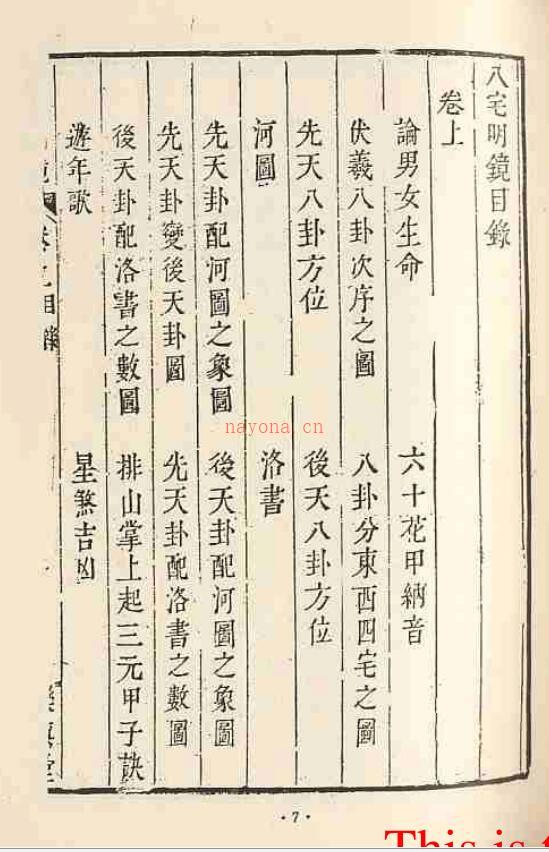 八宅明鏡目錄
卷上
論男女生命 六十花甲納音
伏羲八卦次序之圖 八卦分東西四宅之圖
先天八卦方位 後天八卦方位
河圖 洛書
先天卦配河圖之象圖 後天卦配河圖之象圖
先天卦變後天卦圖 先天卦配洛書之數圖
後天卦配洛書之數圖 排山掌上起三元甲子訣
遊年歌 星煞吉凶
目錄
nayona.cn
·7·
This is t